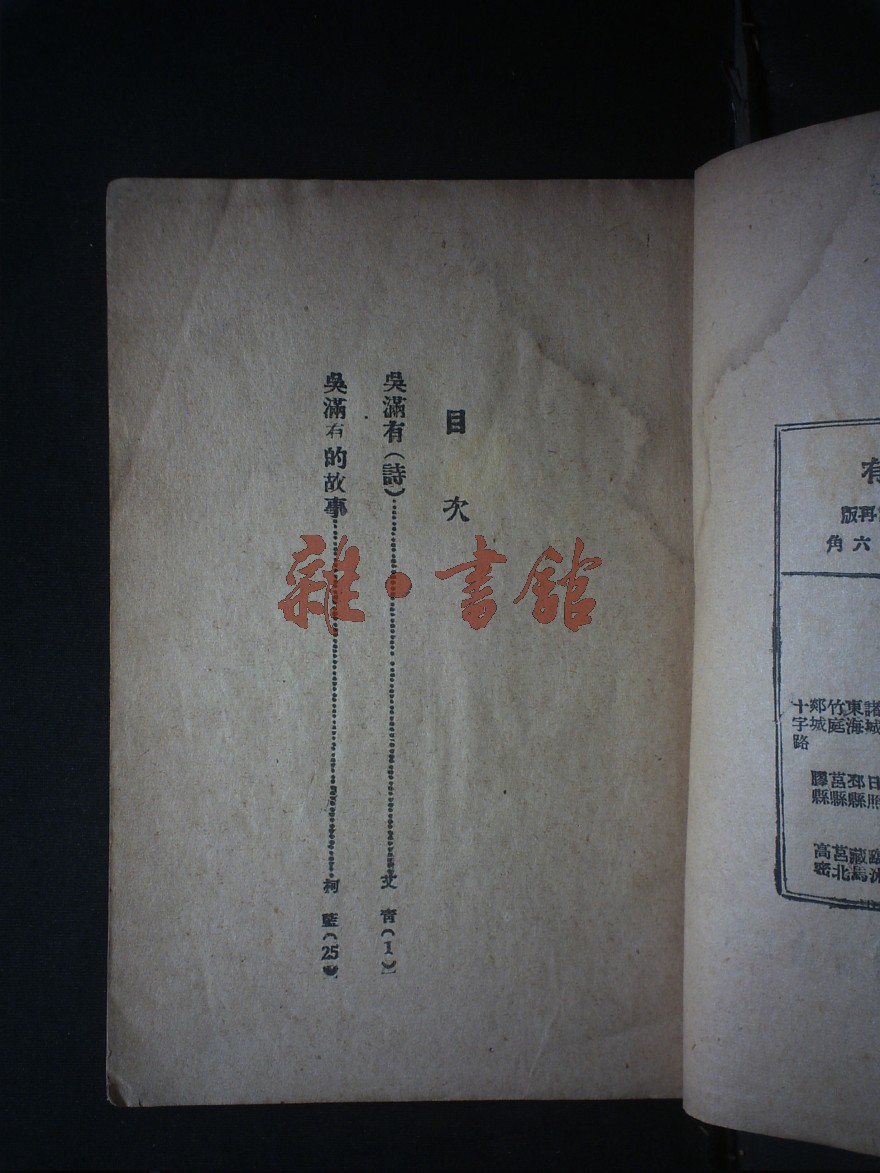 目次
吳滿有(詩)……艾青(1)
吳滿有的故事……柯藍(25)
雜·書館
有
再版
六角
諸城
東海
竹庭
郯城
十字路
日照
邳縣
莒縣
膠縣
藏馬
莒北
高密